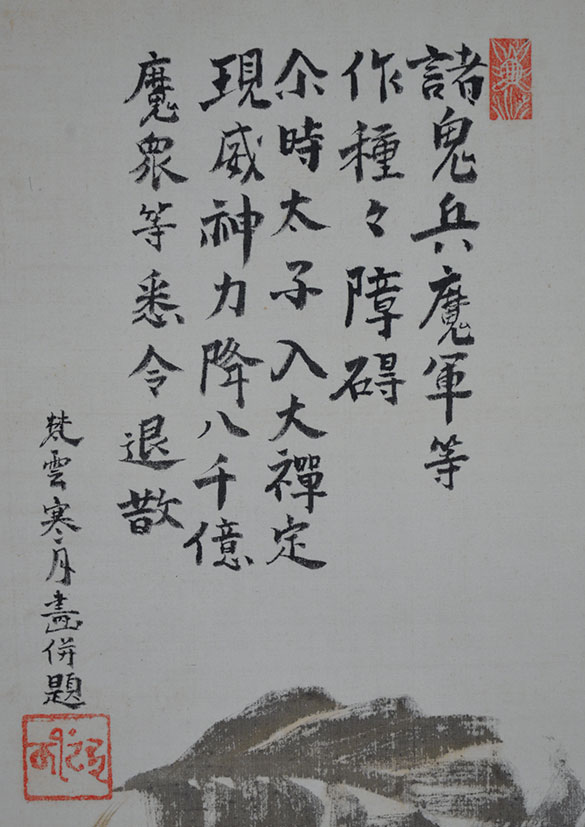 諸鬼兵魔軍等
作種々障碍
尒時太子入大禪定
現威神力降八千億
魔衆等悉令退散
梵雲寒月畫併題